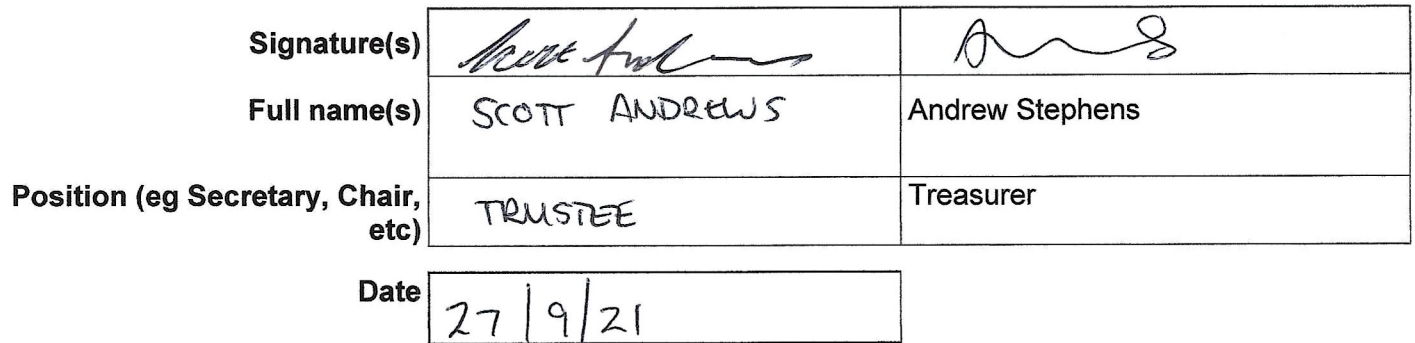 Signature(s)
Full name(s) SCOTT ANDREWS Andrew Stephens
Position (eg Secretary, Chair, TRUSTEE Treasurer
etc)
Date 27/9/21